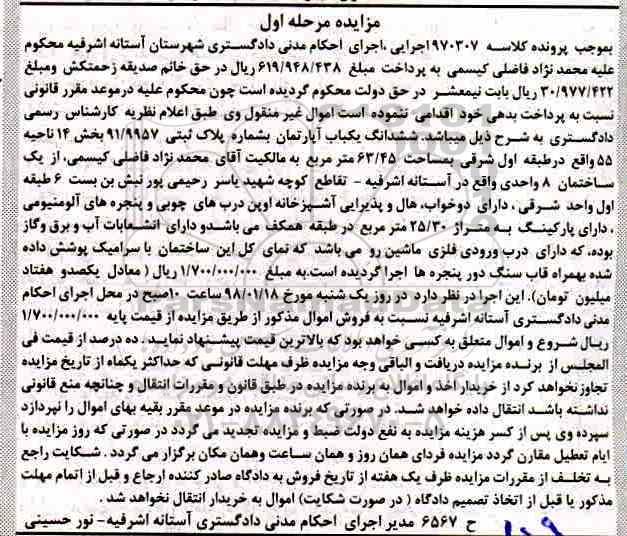 مزایده مرحله اول
بموجب پرونده کلاسه ۹۷۰۳۰۷اجرایی ،اجرای احکام مدنی دادگستری شهرستان آستانه اشرفیه محکوم
علیه محمد نژاد فاضلی کیسمی به پرداخت مبلغ ۶۱۹/۹۴۸/۴۳۸ ریال در حق خانم صدیقه زحمتکش ومبلغ
۳۰/۹۷۷/۴۲۲ ریال بابت نیمعشر در حق دولت محکوم گردیده است چون محکوم علیه درموعد مقرر قانونی
نسبت به پرداخت بدهی خود اقدامی ننموده است اموال غیر منقول وی طبق اعلام نظریه کارشناس رسمی
دادگستری به شرح ذیل میباشد. ششدانگ یکباب آپارتمان بشماره پلاک ثبتی ۹۱/۹۹۵۷ بخش ۱۴ ناحیه
۵۵ واقع درطبقه اول شرقی بمساحت ۶۳/۴۵ متر مربع به مالکیت آقای محمد نژاد فاضلی کیسمی، از یک
ساختمان ۸ واحدی واقع در آستانه اشرفیه - تقاطع کوچه شهید یاسر رحیمی پور نبش بن بست ۶ طبقه
اول واحد شرقی ، دارای دوخواب، هال و پذیرایی آشپزخانه اوپن درب های چوبی و پنجره های آلومنیومی
، دارای پارکینگ به متراژ ۲۵/۳۰ متر مربع در طبقه همکف می باشدو دارای انشعابات آب و برق وگاز
بوده، که دارای درب ورودی فلزی ماشین رو می باشد که نمای کل این ساختمان با سرامیک پوشش داده
شده بهمراه قاب سنگ دور پنجره ها اجرا گردیده است.به مبلغ ۱/۷۰۰/۰۰۰/۰۰۰ ریال ( معادل یکصدو هفتاد
میلیون تومان). این اجرا در نظر دارد در روز یک شنبه مورخ ۹۸/۰۱/۱۸ ساعت ۱۰صبح در محل اجرای احکام
مدنی دادگستری آستانه اشرفیه نسبت به فروش اموال مذکور از طریق مزایده از قیمت پایه ۱/۷۰۰/۰۰۰/۰۰۰
ریال شروع و اموال متعلق به کسی خواهد بود که بالاترین قیمت پیشنهاد نماید . ده درصد از قیمت فی
المجلس از برنده مزایده دریافت و الباقی وجه مزایده ظرف مهلت قانونی که حداکثر یکماه از تاریخ مزایده
تجاوز نخواهد کرد از خریدار اخذ و اموال به برنده مزایده در طبق قانون و مقررات انتقال و چنانچه منع قانونی
نداشته باشد انتقال داده خواهد شد. در صورتی که برنده مزایده در موعد مقرر بقیه بهای اموال را نپردازد
سپرده وی پس از کسر هزینه مزایده به نفع دولت ضبط و مزایده تجدید می گردد در صورتی که روز مزایده با
ایام تعطیل مقارن گردد مزایده فردای همان روز و همان ساعت وهمان مکان برگزار می گردد . شکایت راجع
به تخلف از مقررات مزایده ظرف یک هفته از تاریخ فروش به دادگاه صادر کننده ارجاع و قبل از اتمام مهلت
مذکور یا قبل از اتخاذ تصمیم دادگاه ( در صورت شکایت) اموال به خریدار انتقال نخواهد شد .
ح ۶۵۶۷ مدیر اجرای احکام مدنی دادگستری آستانه اشرفیه- نور حسینی